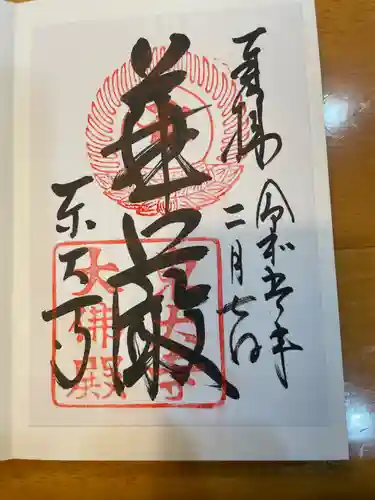 奉拝
令和七年
二月七日
華厳
東大寺
東大寺
大佛殿